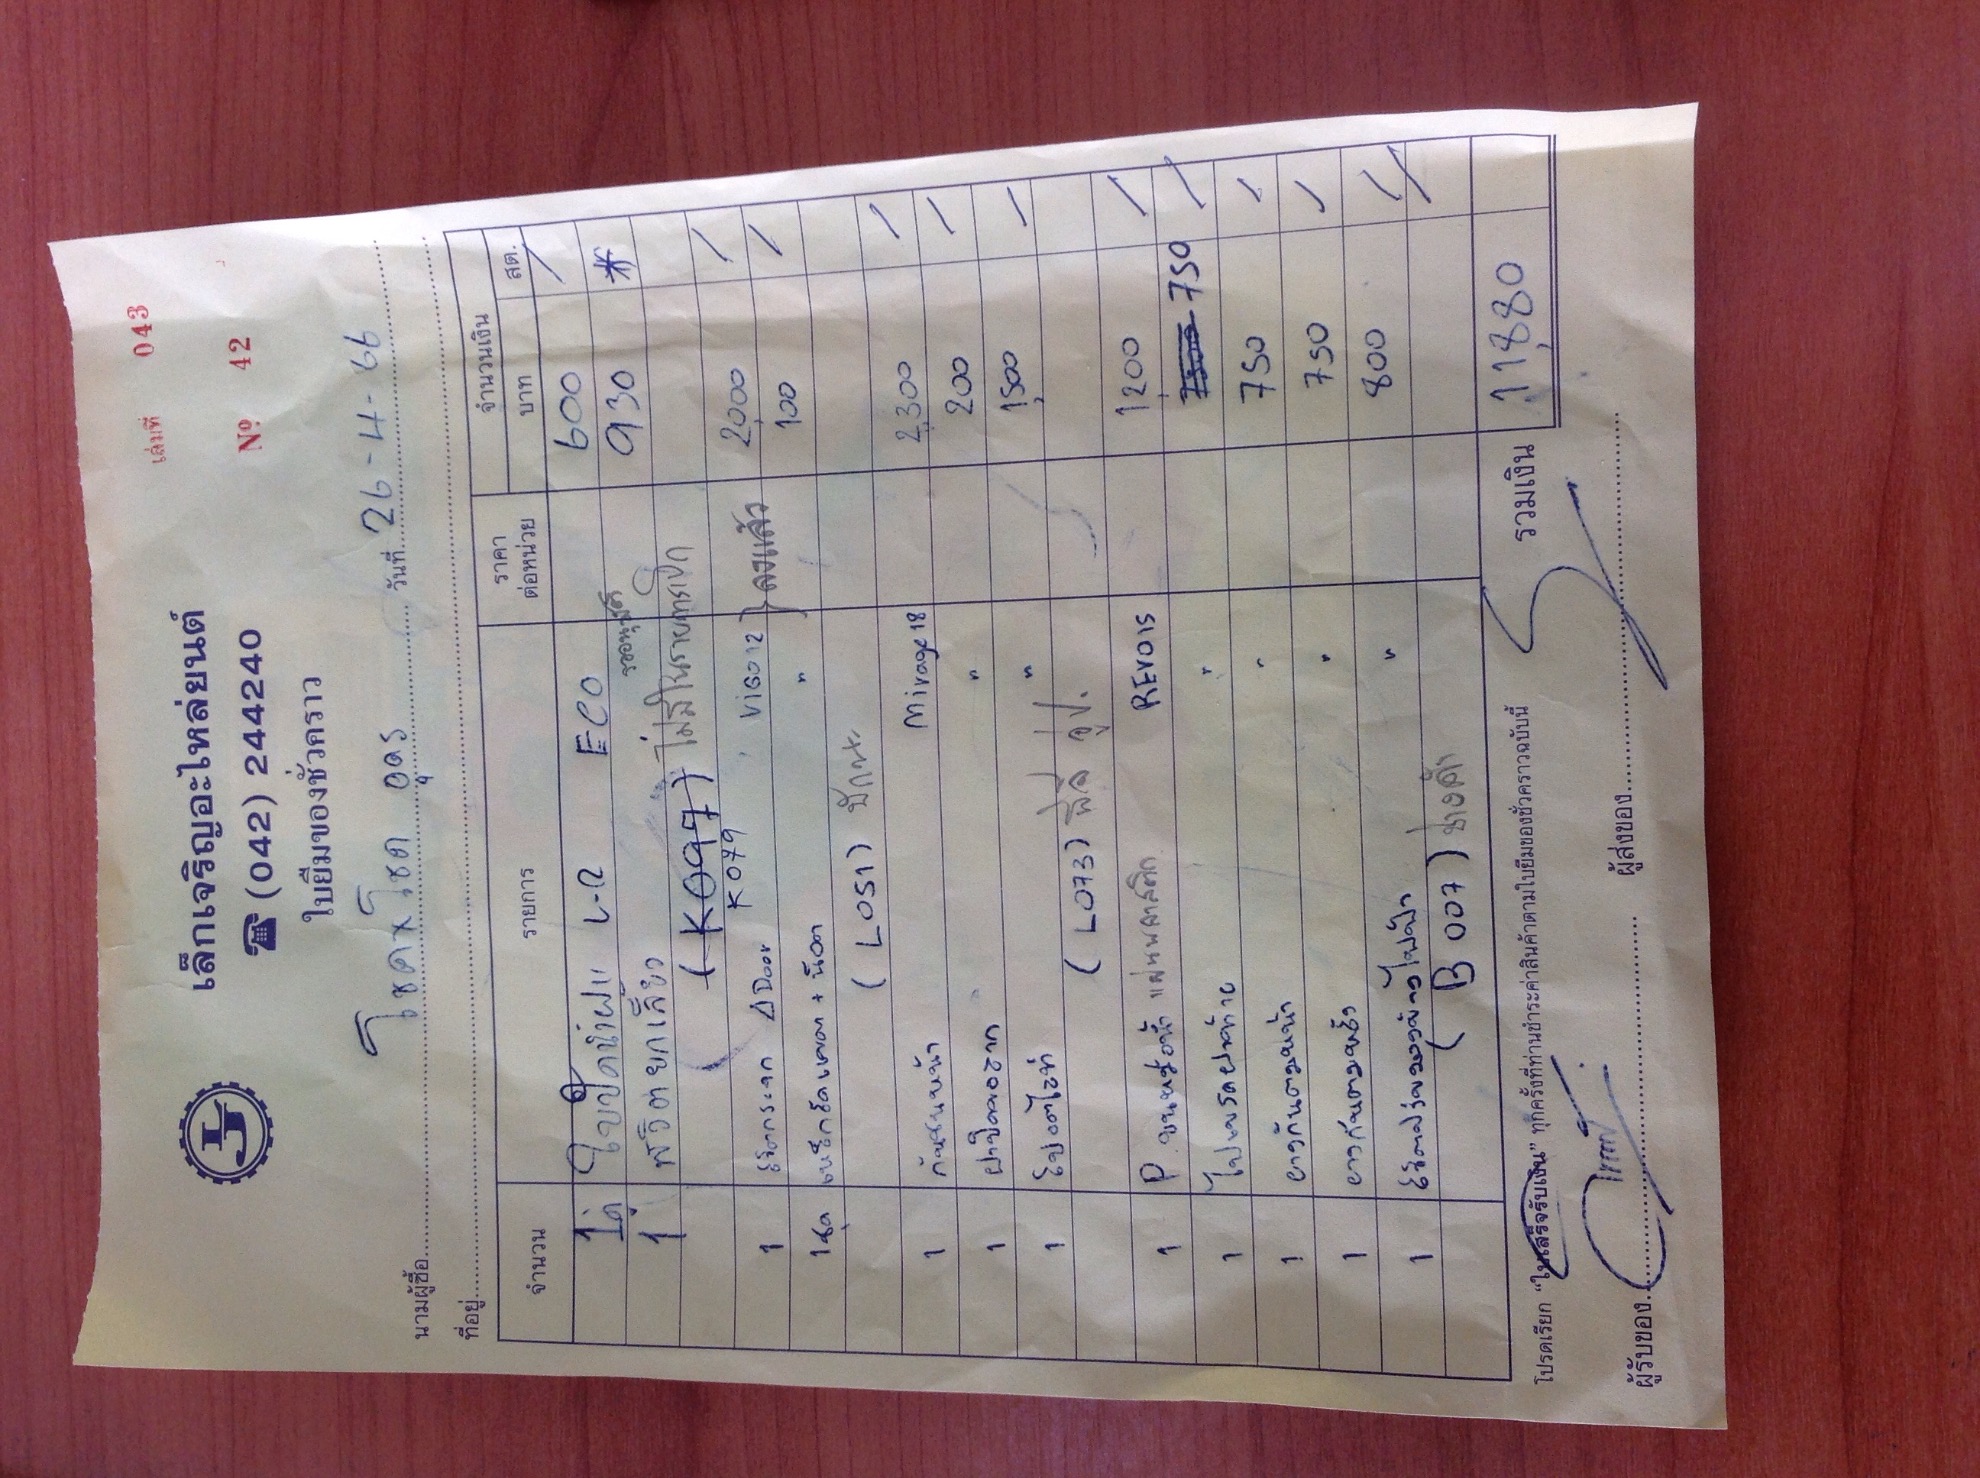 เล่มที่ 043
เล็กเจริญอะไหล่ยนต์
☎ (042) 244240
Nº 42
ใบยืมของชั่วคราว
นามผู้ซื้อ โชคชัย อุดร วันที่ 26-4-66
ที่อยู่
จำนวน รายการ ราคาต่อหน่วย จำนวนเงิน
บาท สต.
1คู่ ใบปัดน้ำฝน L-R ECO 600 /
1 สวิตยกเลี้ยว 930
(K097) ไม่มีในรายการเบิก
K079
1 4Door VIGO 12 2,000 /
1ชุด + น็อต " 100 /
ลงแล้ว
(L051)
1 กันชนหน้า Mirage 18 2,300 /
1 " 200 /
1 " 1,500 /
(L073)
1 แผ่นพลาสติก REVO 15 1,200 /
1 " 750 /
1 ยางกันตมหน้า " 750 /
1 ยางกันตมหลัง " 750 /
1 " 800 /
(B 007)
รวมเงิน 11,880
โปรดเรียก "ใบเสร็จรับเงิน" ทุกครั้งที่ท่านชำระค่าสินค้าตามใบยืมของชั่วคราวฉบับนี้
ผู้รับของ ผู้ส่งของ